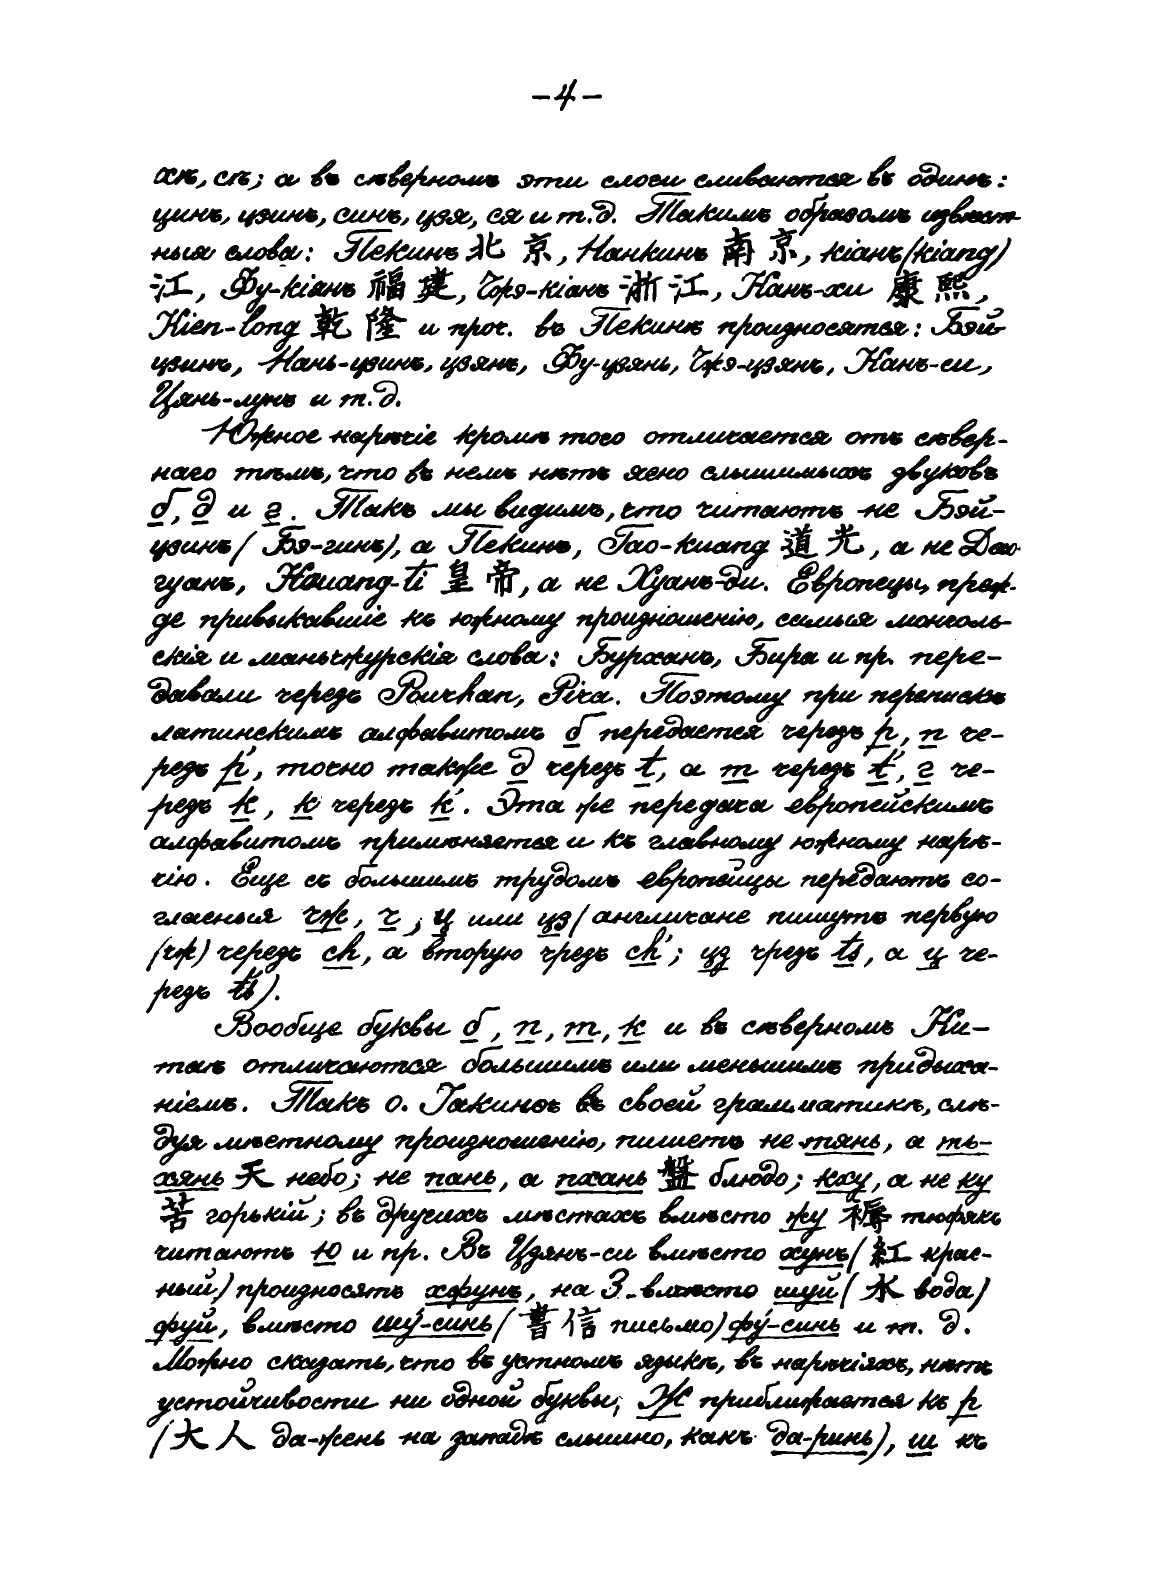 -4-
хѣ, сѣ; а въ сѣверномъ эти слоги сливаются въ одинъ:
цинъ, цзинъ, синъ, цзя, ся и т.д. Такимъ образомъ извѣст-
ныя слова: Пекинъ 北京, Нанкинъ 南京, кіанъ (kiang)
江, Фу-кіянь 福建, Чжэ-кіанъ 浙江, Канъ-хи 康熙,
Kien-long 乾隆 и проч. въ Пекинѣ произносятся: Бэй-
цзинъ, Нань-цзинъ, цзянъ, Фу-цзянь, Чжэ-цзянъ, Канъ-си,
Цянь-лунъ и т.д.
Южное нарѣчіе кромѣ того отличается отъ сѣвер-
наго тѣмъ, что въ немъ нѣтъ ясно слышимыхъ звуковъ
б, д и г. Такъ мы видимъ, что читаютъ не Бэй-
цзинъ (Бэ-гинъ), а Пекинъ, Тао-kuang 道光, а не Дао-
гуанъ, Houang-ti 皇帝, а не Хуанъ-ди. Европейцы, преж-
де привыкавшіе къ южному произношенію, самыя монголь-
скія и маньчжурскія слова: Бурханъ, Бира и пр. пере-
давали чрезъ Pourhan, Pira. Поэтому при перепискѣ
латинскимъ алфавитомъ б передается черезъ p, п че-
резъ p', точно также д черезъ t, а т черезъ t', г че-
резъ k, к черезъ k'. Эта же передача европейскимъ
алфавитомъ примѣняется и къ главному южному нарѣ-
чію. Еще съ большимъ трудомъ европейцы передаютъ со-
гласныя чж, ч, ц или цз (англичане пишутъ первую
(чж) чередъ ch, а вторую чрезъ ch'; цз чрезъ ts, а ц че-
резъ t's).
Вообще буквы б, п, т, к и въ сѣверномъ Ки-
таѣ отличаются большимъ или меньшимъ придыха-
ніемъ. Такъ о. Іакинѳъ въ своей грамматикѣ, слѣ-
дуя мѣстному произношенію, пишетъ не тянь, а ть-
хянь 天 небо; не пань, а пхань 盤 блюдо; кху, а не ку
苦 горькій; въ другихъ мѣстахъ вмѣсто жу 褥 тюфякъ
читаютъ ю и пр. Въ Цзянъ-си вмѣсто хунъ (紅 крас-
ный) произносятъ хфунъ, на З. вмѣсто шуй (水 вода)
фуй, вмѣсто шу́-синь (書信 письмо) фу́-синь и т. д.
Можно сказать, что въ устномъ языкѣ, въ нарѣчіяхъ, нѣтъ
устойчивости ни одной буквы; Ж приближается къ р
(大人 да-жень на западѣ слышно, какъ да-ринь), ш къ